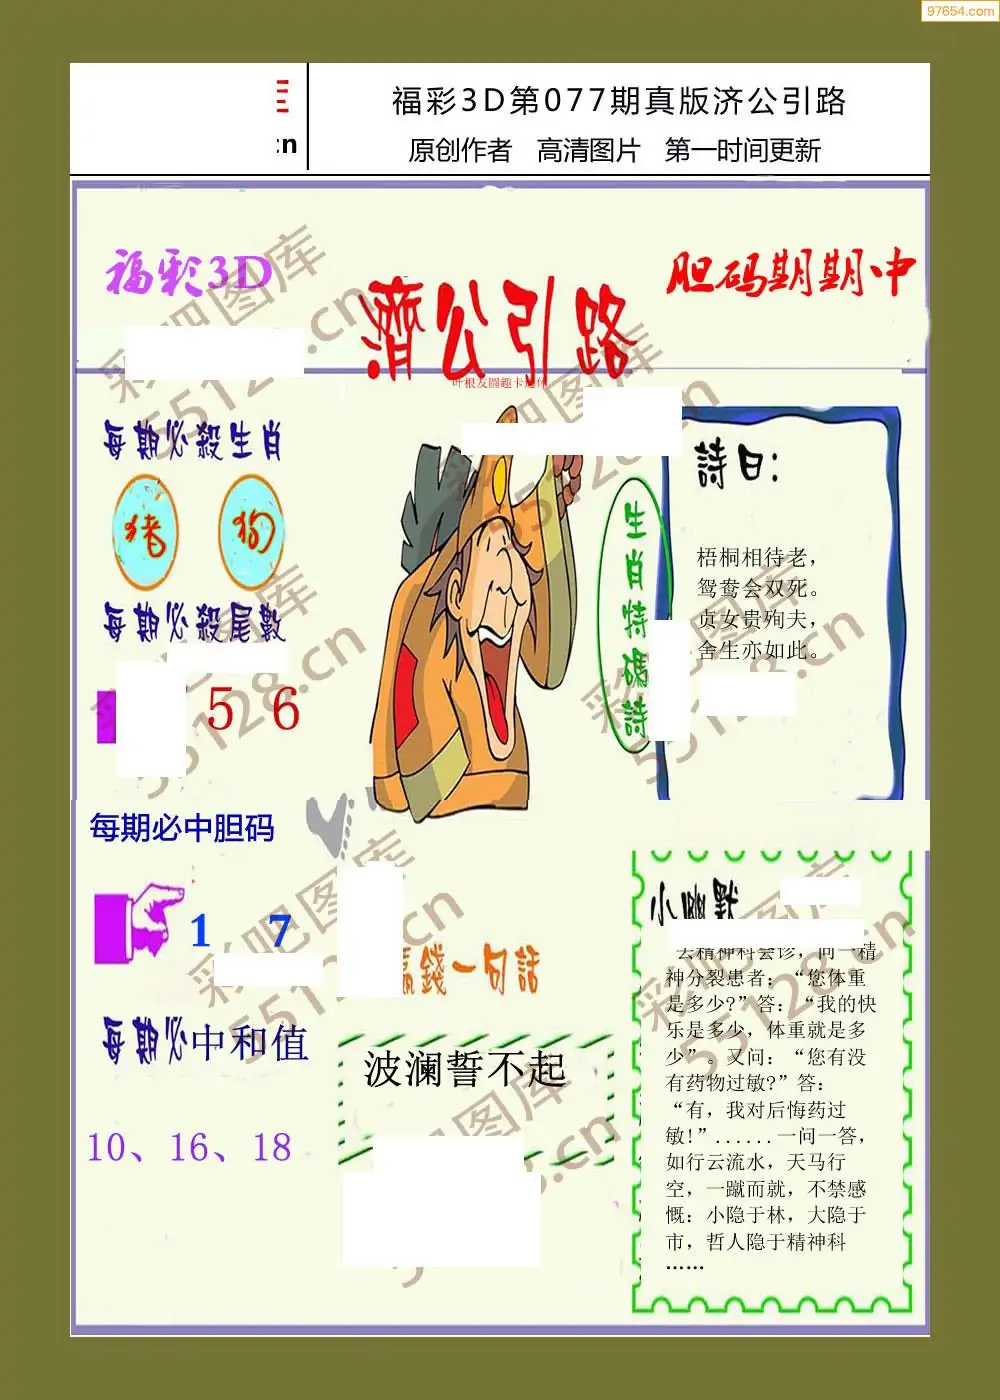 97654.com
:n
福彩3D第077期真版济公引路
原创作者 高清图片 第一时间更新
福彩3D
濟公引路
胆码期期中
每期必殺生肖
猪 狗
每期必殺尾數
5 6
每期必中胆码
1 7
每期必中和值
10、16、18
生肖特碼詩
詩曰：
梧桐相待老，
鸳鸯会双死。
贞女贵殉夫，
舍生亦如此。
贏錢一句話
波澜誓不起
小幽默
去精神科会诊，问一精
神分裂患者：“您体重
是多少?”答：“我的快
乐是多少，体重就是多
少”。又问：“您有没
有药物过敏?”答：
“有，我对后悔药过
敏!”......一问一答，
如行云流水，天马行
空，一蹴而就，不禁感
慨：小隐于林，大隐于
市，哲人隐于精神科
……
彩吧图库
55128.cn